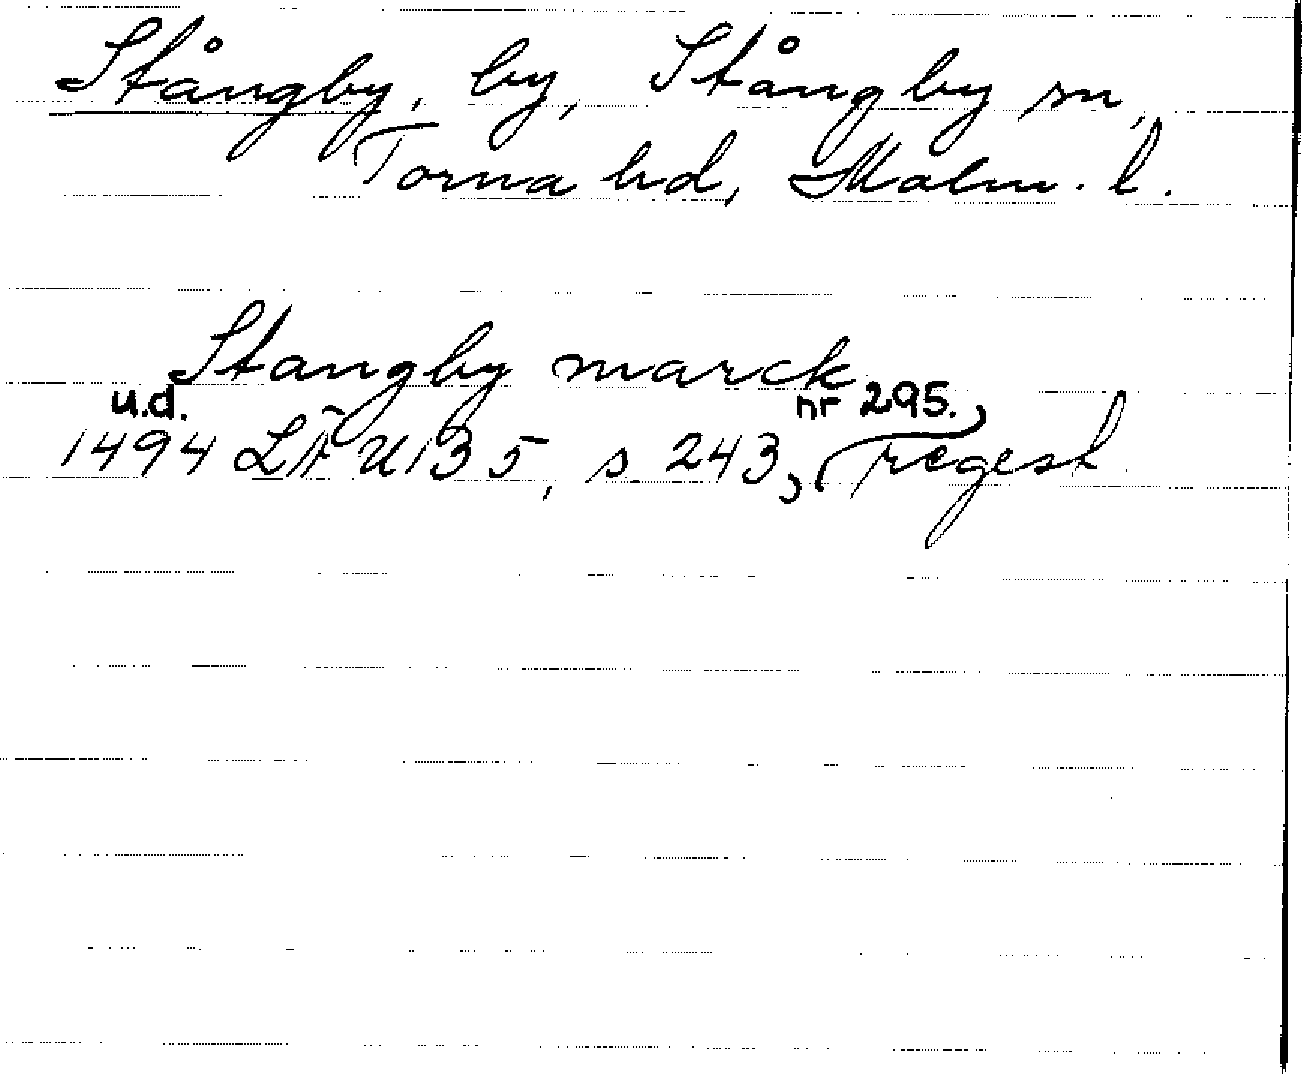 Stångby, by, Stångby sn,
Torna hd, Malm. l.
Stangby marck
u.d. nr 295.,
1494 LÄU B 5, s 243, regest